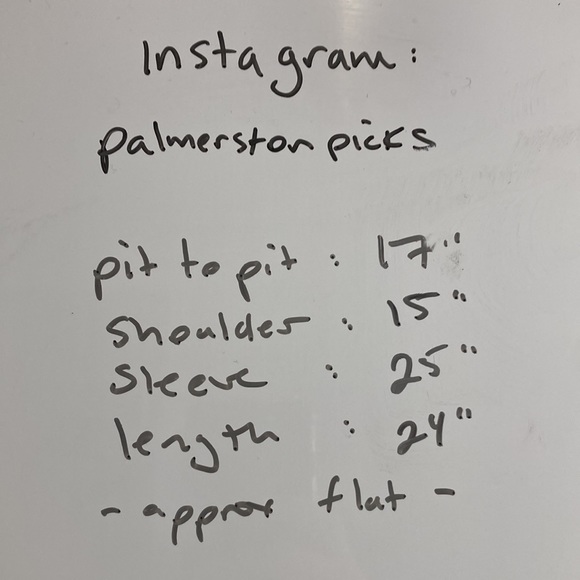 Instagram:
palmerston picks
pit to pit : 17"
shoulder : 15"
sleeve : 25"
length : 24"
- approx flat -